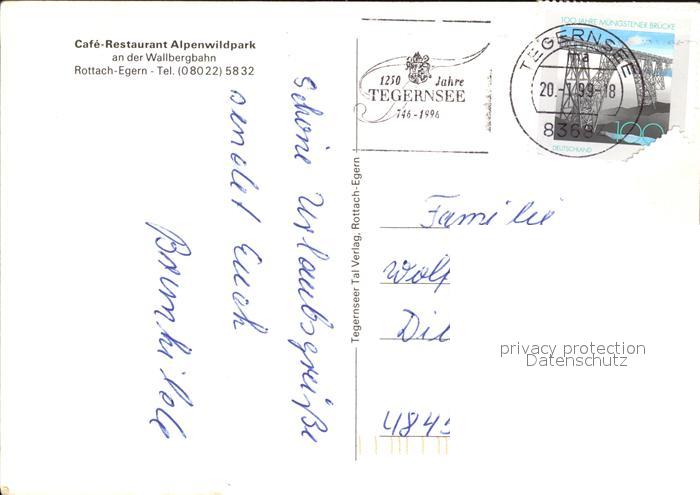 Café-Restaurant Alpenwildpark
an der Wallbergbahn
Rottach-Egern - Tel. (0 80 22) 58 32
Schöne Urlaubsgrüße
sendet Euch
Brunhilde
Tegernseer Tal Verlag, Rottach-Egern
1250 Jahre
TEGERNSEE
746-1996
TEGERNSEE
ma
20.-
.99-18
8368
100 JAHRE MÜNGSTENER BRÜCKE
100
DEUTSCHLAND
Familie
Wolf
Di
4845
privacy protection
Datenschutz